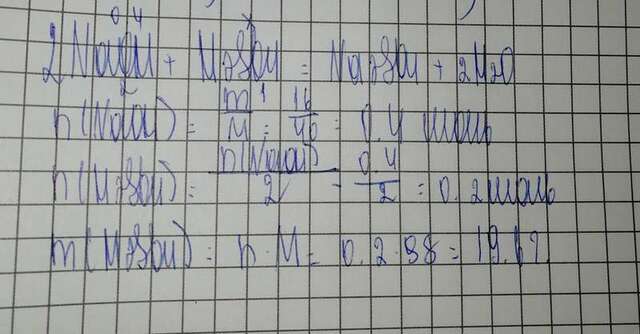 0,4 x
2NaOH + H2SO4 = Na2SO4 + 2H2O
2 1
n(NaOH) = m/M = 16/40 = 0,4 моль
n(H2SO4) = n(NaOH)/2 = 0,4/2 = 0,2 моль
m(H2SO4) = n · M = 0,2 · 98 = 19,6 г.